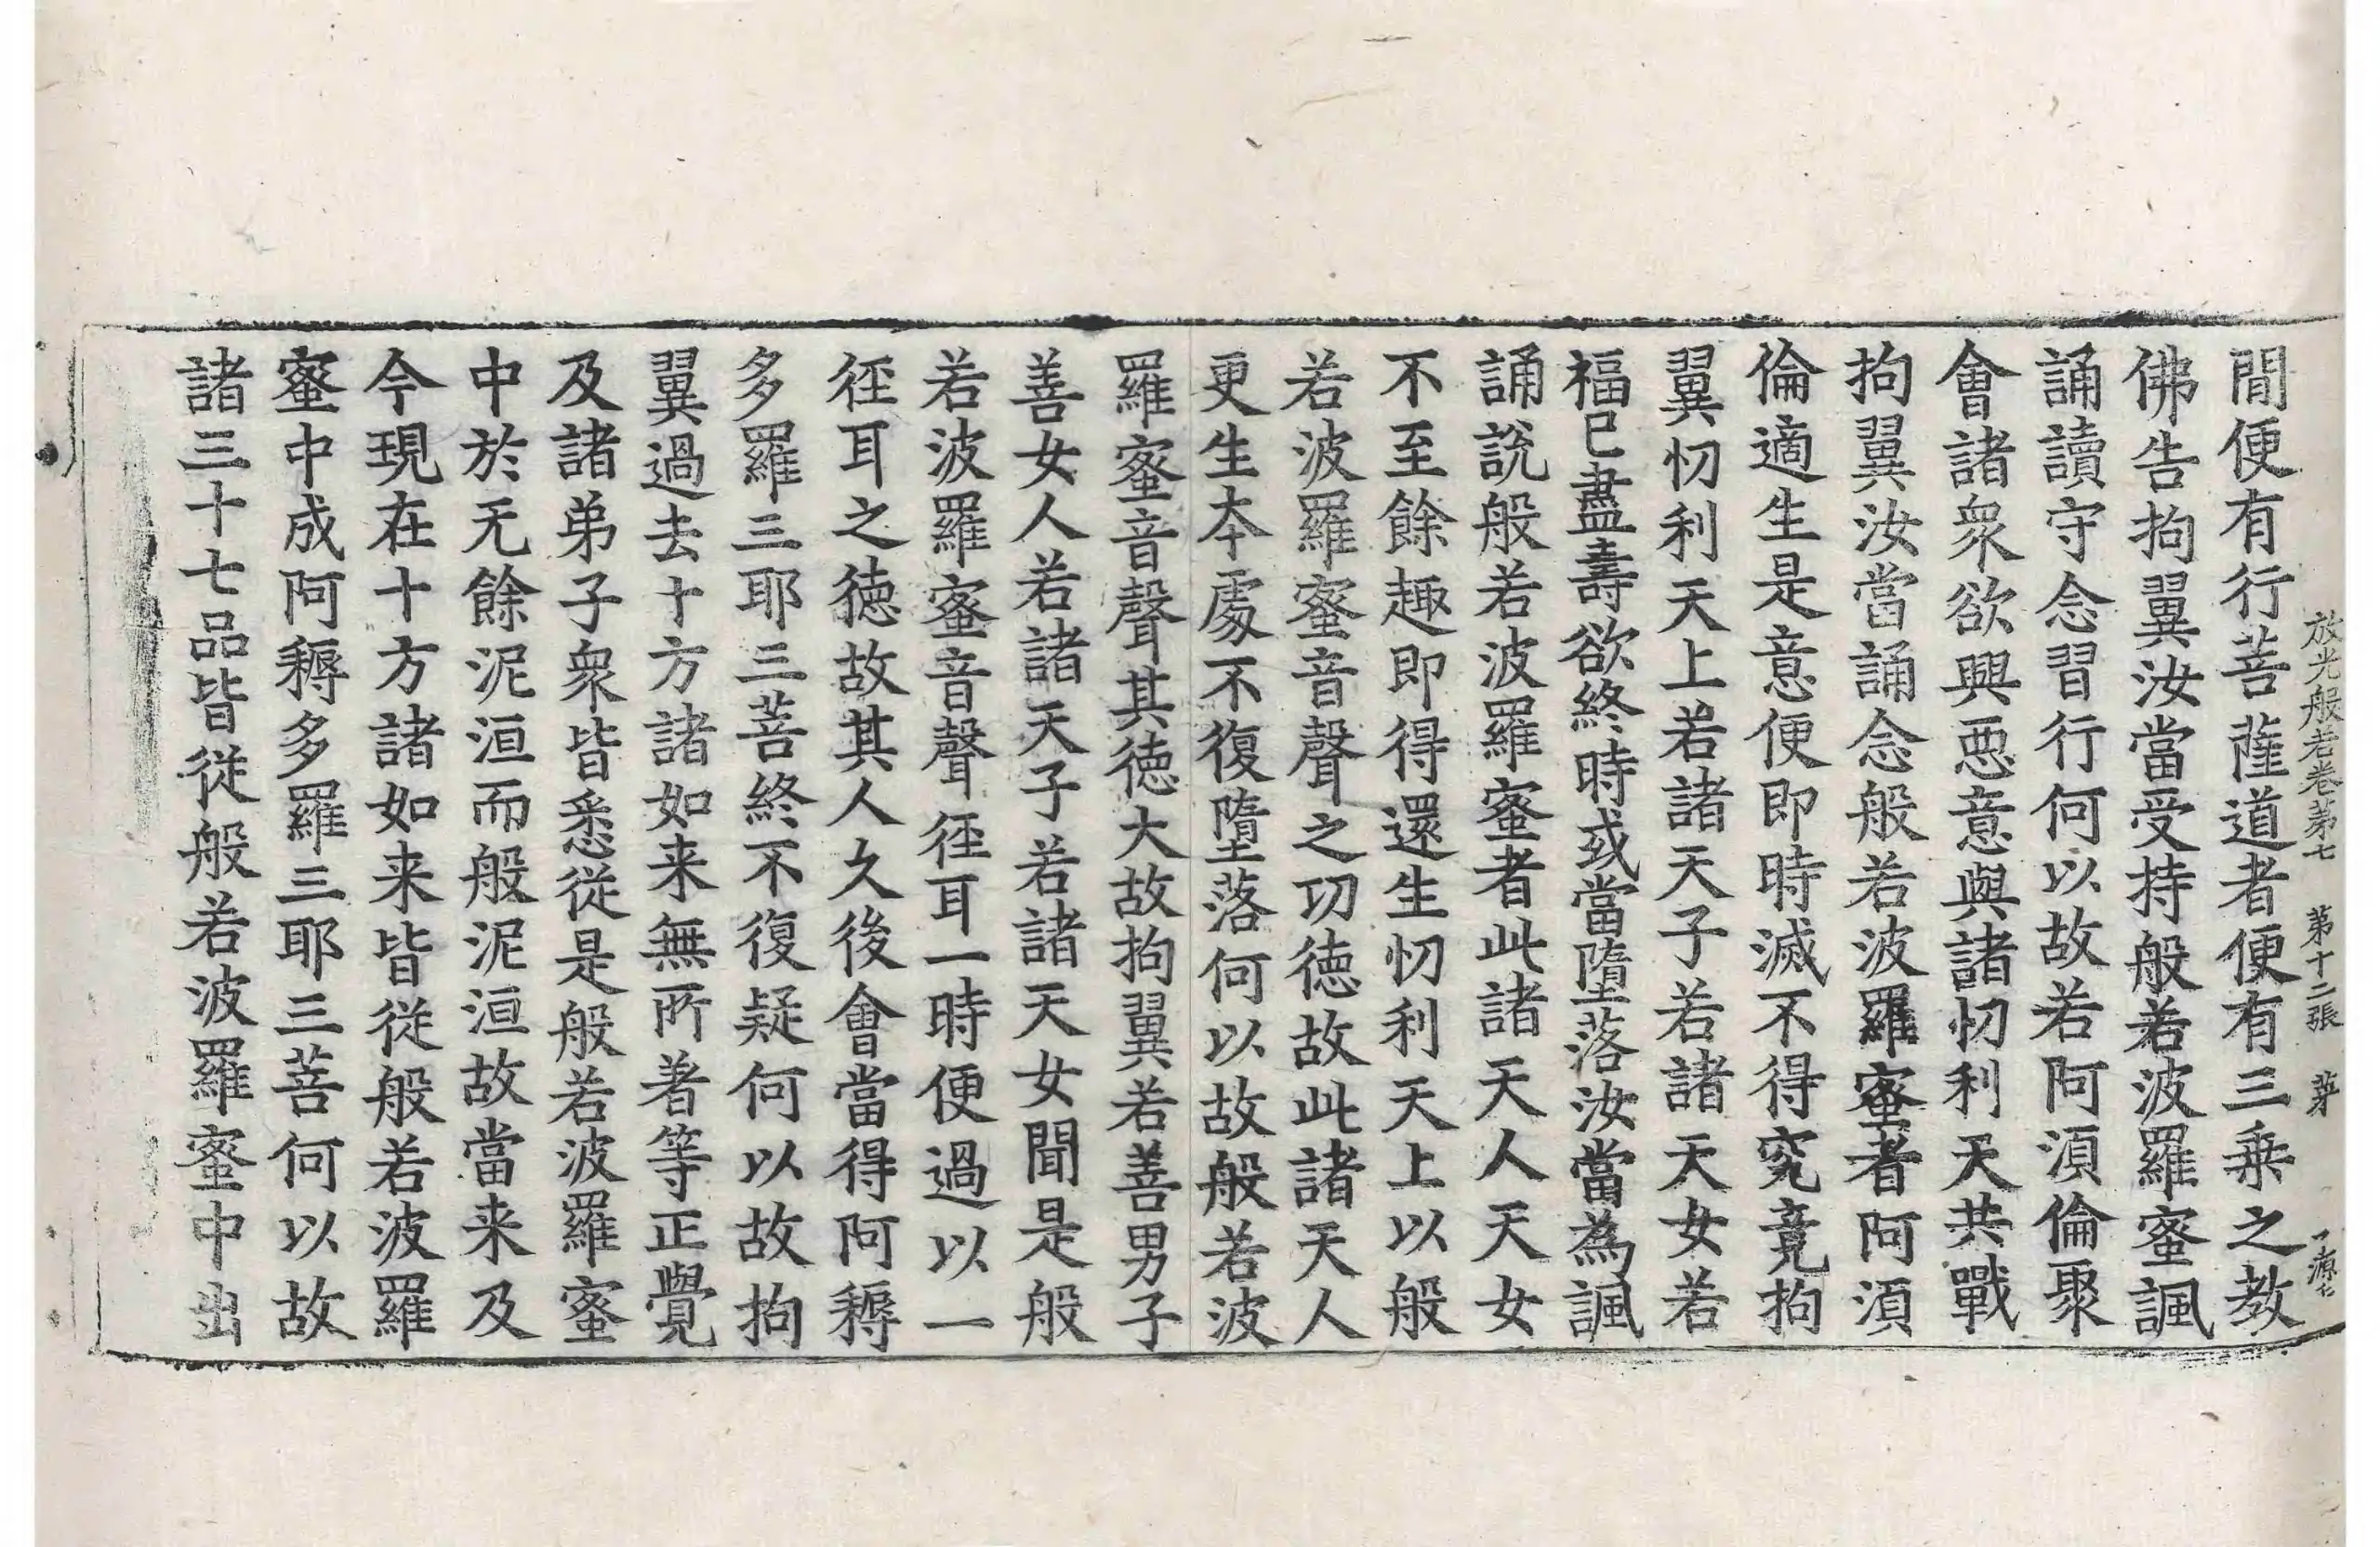 放光般若卷第七　第十二張　芥
間便有行菩薩道者便有三乗之教
佛告拘翼汝當受持般若波羅蜜諷
誦讀守念習行何以故若阿湏倫聚
會諸衆欲興惡意與諸忉利天共戰
拘翼汝當誦念般若波羅蜜者阿湏
倫適生是意便即時滅不得究竟拘
翼忉利天上若諸天子若諸天女若
福已盡壽欲終時或當墮落汝當為諷
誦說般若波羅蜜者此諸天人天女
不至餘趣即得還生忉利天上以般
若波羅蜜音聲之功徳故此諸天人
更生本處不復墮落何以故般若波
羅蜜音聲其徳大故拘翼若善男子
善女人若諸天子若諸天女聞是般
若波羅蜜音聲徑耳一時便過以一
徑耳之徳故其人久後會當得阿耨
多羅三耶三菩終不復疑何以故拘
翼過去十方諸如来無所著等正覺
及諸弟子衆皆悉従是般若波羅蜜
中於无餘泥洹而般泥洹故當来及
今現在十方諸如来皆従般若波羅
蜜中成阿耨多羅三耶三菩何以故
諸三十七品皆従般若波羅蜜中出